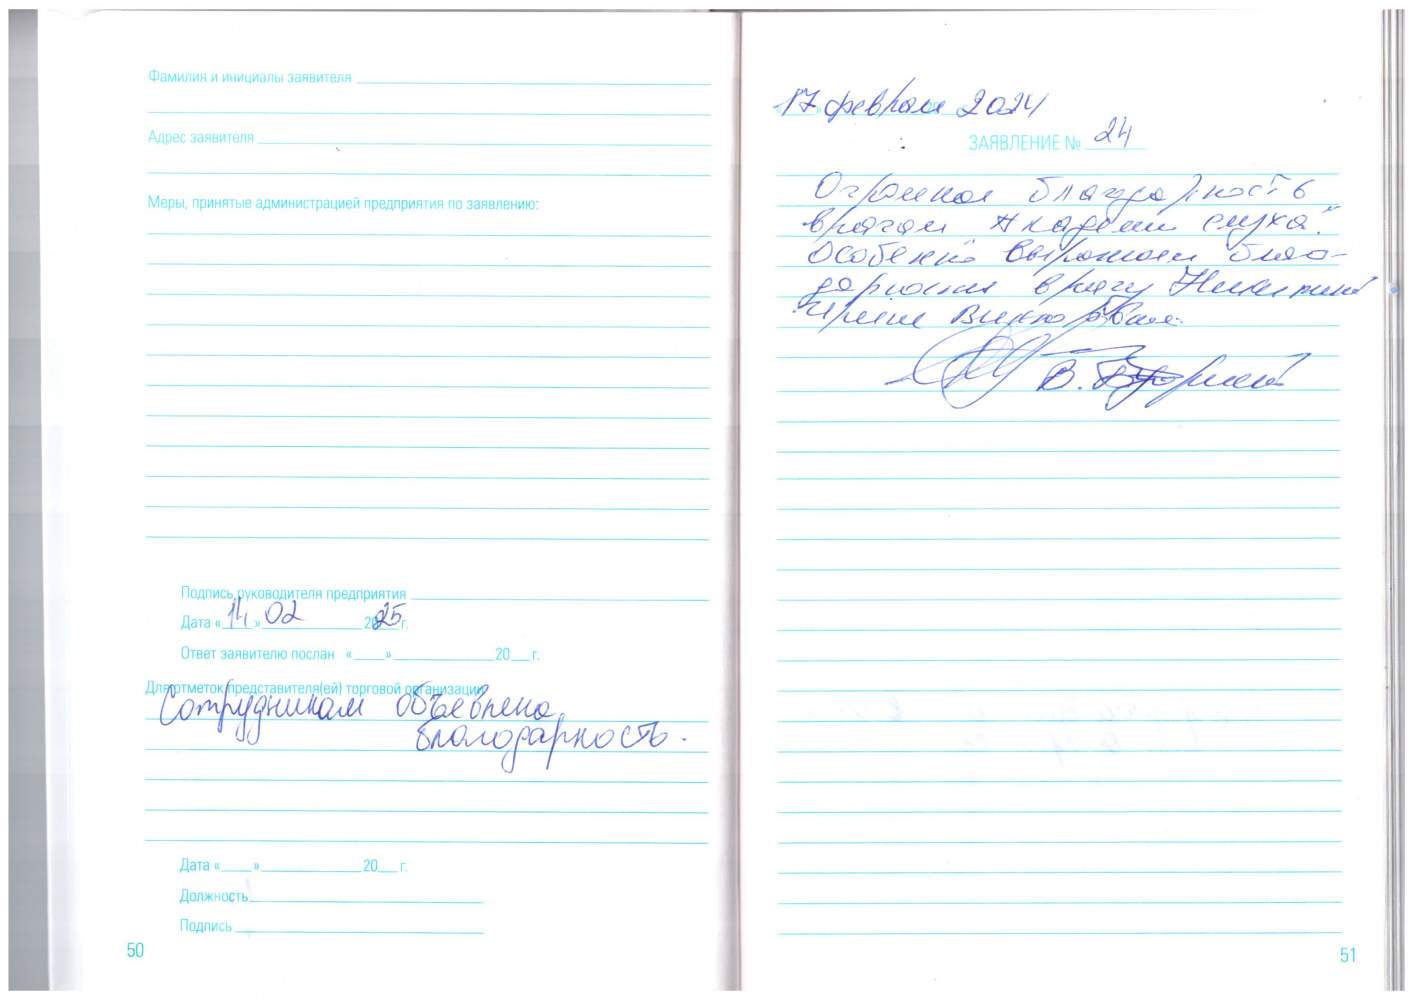 Фамилия и инициалы заявителя
Адрес заявителя
Меры, принятые администрацией предприятия по заявлению:
Подпись руководителя предприятия
Дата «14» 02 2025 г.
Ответ заявителю послан «    »    20    г.
Для отметок представителя(ей) торговой организации
Сотрудникам объявлена
благодарность.
Дата «    »    20    г.
Должность
Подпись
50
«17» февраля 2024
ЗАЯВЛЕНИЕ № 24
Огромная благодарность
врачам Академии слуха."
Особенно выражаем благо-
дарность врачу Никитиной
Ирине Викторовне.
В.
51